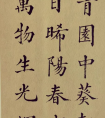 青園中葵
日晞陽春
萬物生光